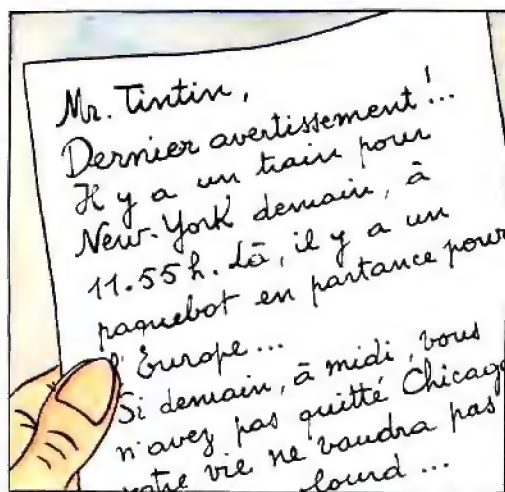 Mr. Tintin,
Dernier avertissement!..
Il y a un train pour
New-York demain, à
11.55h. Là, il y a un
paquebot en partance pour
l'Europe...
Si demain, à midi, vous
n'avez pas quitté Chicago
votre vie ne vaudra pas
lourd...